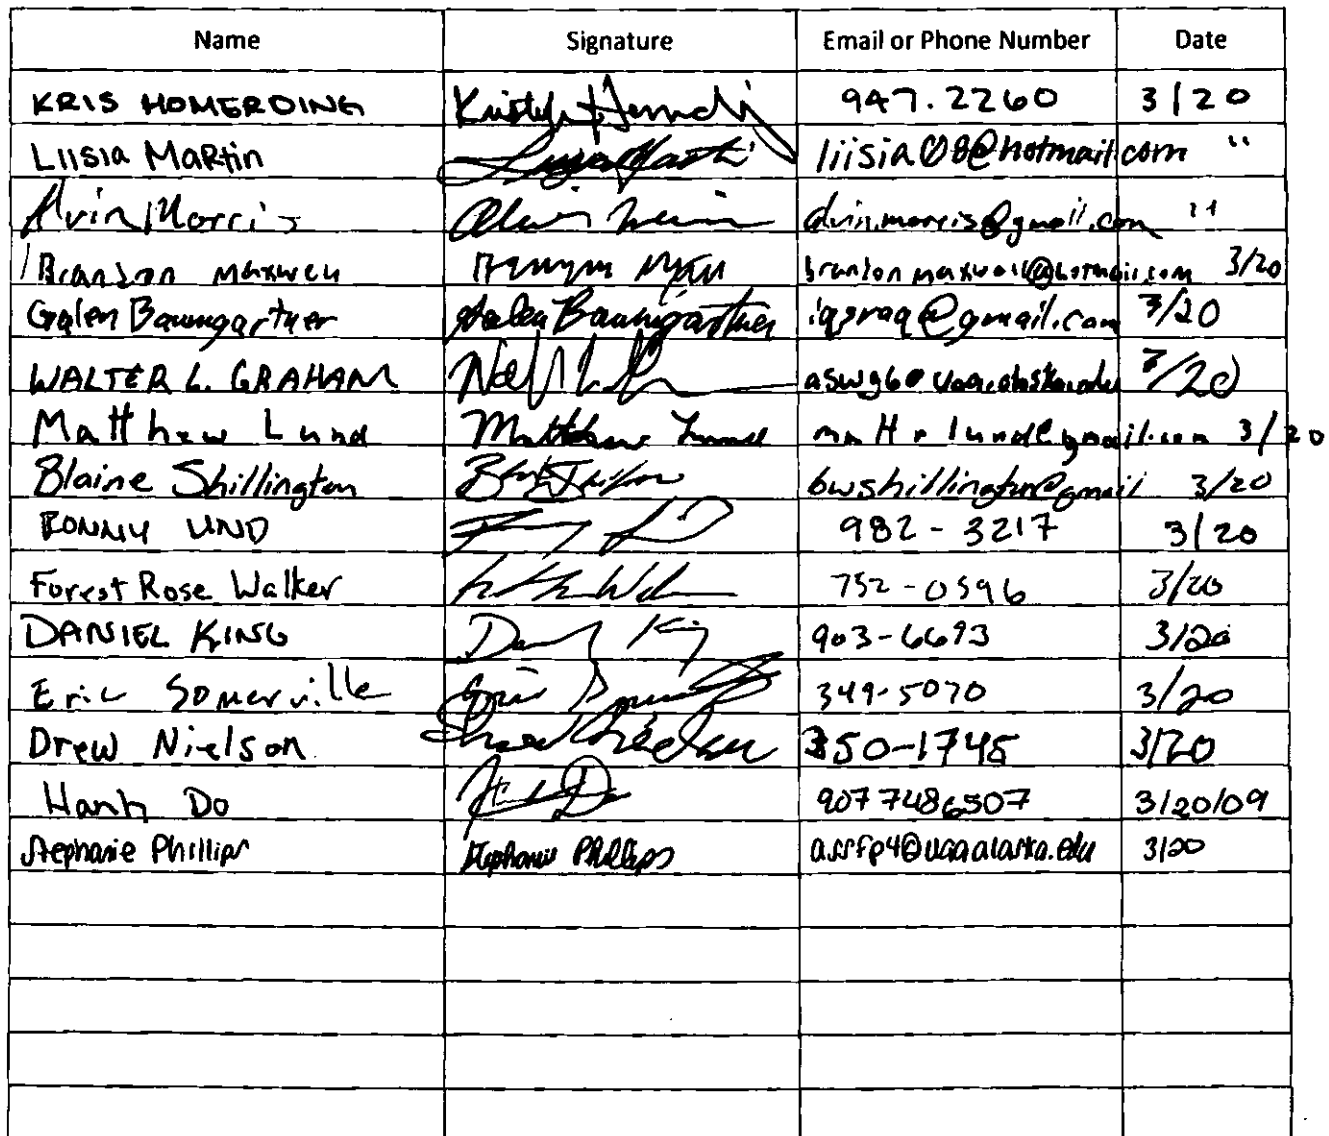 Name Signature Email or Phone Number Date
KRIS HOMERDING 947.2260 3/20
Liisia Martin liisia08@hotmail.com "
Alvin Morris alvin.morris@gmail.com "
Brandon Maxwell brandonmaxwell@hotmail.com 3/20
Galen Baumgartner Galen Baumgartner iqsraq@gmail.com 3/20
WALTER L. GRAHAM aswg6@uaa.alaska.edu 3/20
Matthew Lund Matthew Lund 3/20
Blaine Shillington bwshillington@gmail 3/20
982-3217 3/20
Forest Rose Walker 752-0596 3/20
DANIEL KING 903-6693 3/20
Eric Somerville 349-5070 3/20
Drew Nielson Drew Nielson 350-1745 3/20
Hanh Do 9077486507 3/20/09
Stephanie Phillips Stephanie Phillips assfp4@uaa.alaska.edu 3/20